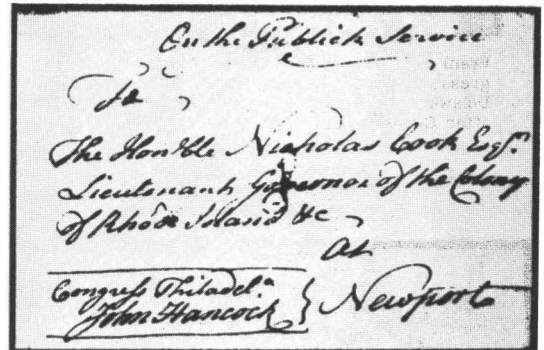 On the Publick Service
To
The Honble Nicholas Cook Esqr.
Lieutenant Governor of the Colony
of Rhode Island &c
At
Congress Philadel.a
John Hancock } Newport